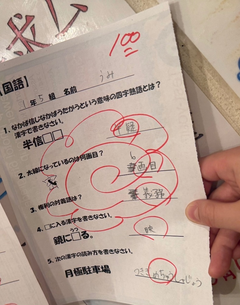 100
国語
1年 5組 名前 うみ
1. なかば信じなかばうたがうという意味の四字熟語とは?
漢字で書きなさい。
半信□□
半疑
2. 太線になっているのは何画目?
6画目
3. 権利の対義語は?
義務
4. □に入る漢字を書きなさい。
鏡に□る。
うつ
映
5. 次の漢字の読み方を書きなさい。
月極駐車場
つきぎめちゅうしゃじょう